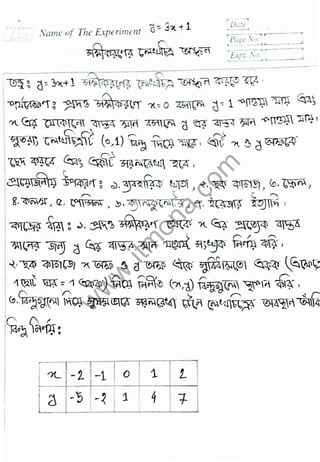 Name of The Experiment y = 3x+1
Date
Page No.
Expt. No.
সমীকরণের লেখচিত্র অঙ্কন
তত্ত্ব: y = 3x+1 সমীকরণের লেখচিত্র অঙ্কন করতে হবে।
পর্যবেক্ষণ: প্রদত্ত সমীকরণে x = 0 বসালে y = 1 পাওয়া যায় এবং
x এর যেকোনো বাস্তব মান বসালে y এর বাস্তব মান পাওয়া যায়।
সুতরাং লেখচিত্রটি (0,1) বিন্দু দিয়ে যাবে। এটি x ও y অক্ষকে
ছেদ করবে এবং একটি সরলরেখা হবে।
প্রয়োজনীয় উপকরণ: ১. ব্যবহারিক খাতা, ২. ছক কাগজ, ৩. স্কেল,
৪. কলম, ৫. পেন্সিল, ৬. ক্যালকুলেটর, ৭. ইরেজার ইত্যাদি।
কাজের ধারা: ১. প্রদত্ত সমীকরণ থেকে x এর প্রত্যেক বাস্তব
মানের জন্য y এর বাস্তব মান সংযুক্ত নির্ণয় করি।
২. ছক কাগজে x অক্ষ ও y অক্ষ একে সুবিধামতো একক (এক্ষেত্রে
1 ছোট ঘর = 1 একক) নিয়ে নির্ণীত (x,y) বিন্দুগুলো স্থাপন করি।
৩. বিন্দুগুলো দিয়ে সরলরেখা টেনে লেখচিত্রের অবস্থান আঁকি
বিন্দু নির্ণয়:
x -2 -1 0 1 2
y -5 -2 1 4 7
www.itmona.com